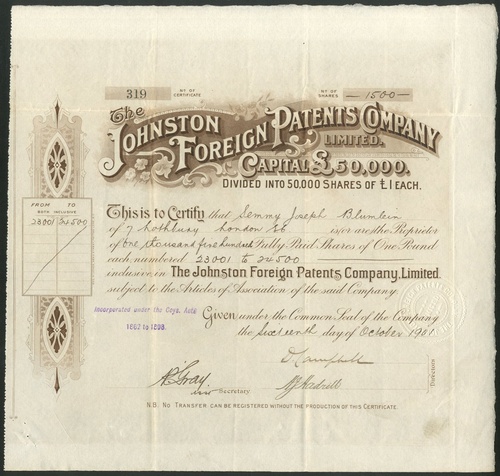 319 No OF CERTIFICATE No OF SHARES — 1500 —
The
JOHNSTON
FOREIGN PATENTS COMPANY
LIMITED.
CAPITAL £50,000.
DIVIDED INTO 50,000 SHARES OF £1 EACH.
FROM TO
BOTH INCLUSIVE
23001 24500
This is to Certify that Semmy Joseph Blumlein
of 7 Lothbury London EC is/or are the Proprietor
of One thousand five hundred Fully Paid Shares of One Pound
each numbered 23001 to 24500
inclusive in The Johnston Foreign Patents Company, Limited.
subject to the Articles of Association of the said Company.
Incorporated under the Coys. Acts
1862 to 1898.
Given under the Common Seal of the Company
the Sixteenth day of October 1901
Secretary.
Directors
N.B. NO TRANSFER CAN BE REGISTERED WITHOUT THE PRODUCTION OF THIS CERTIFICATE.